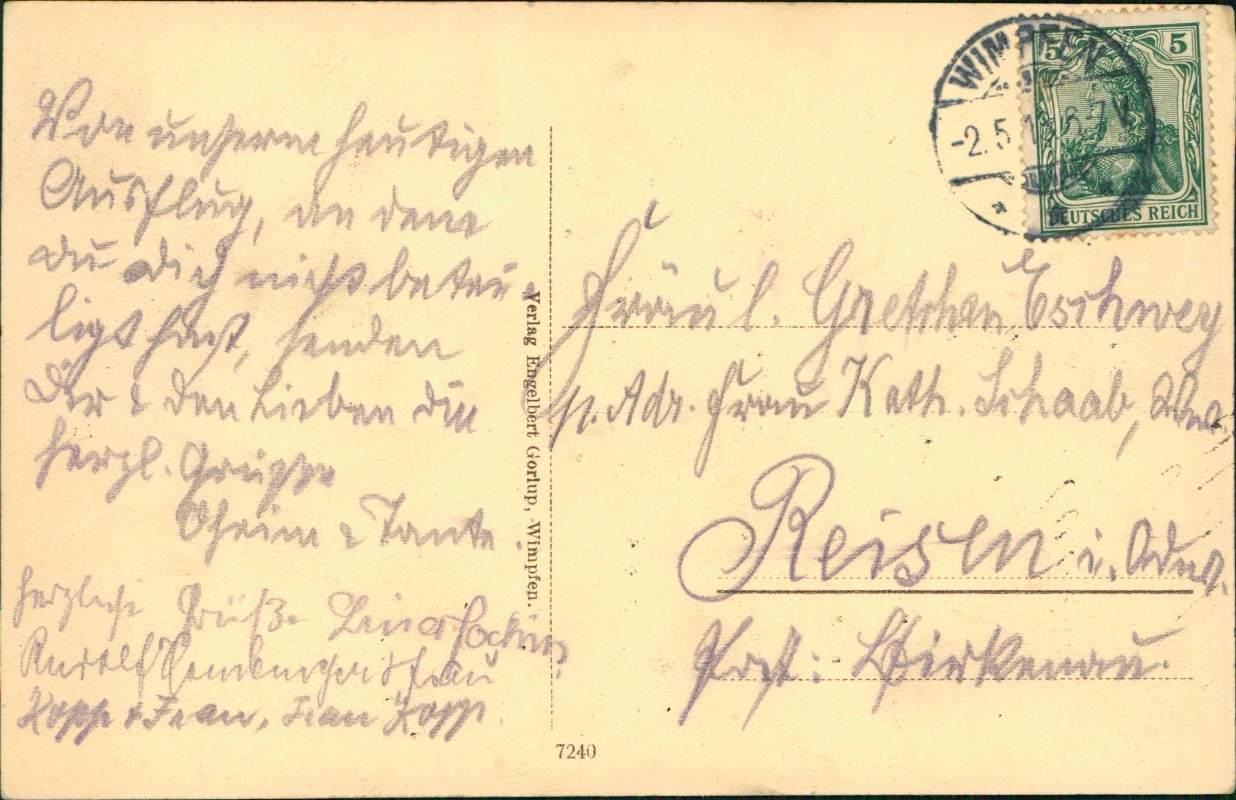 Von unserm heutigen
Ausflug, an dem
du dich nicht betei-
ligt hast, senden
Dir & den Lieben die
herzl. Grüsse
Oheim & Tante.
herzliche Grüße Lina
Rudolf Frau
Kopp & Frau, Jean Kopp.
Verlag Engelbert Gorlup, Wimpfen.
7240
WIMPFEN
-2.5.1 6-7 V.
5 5
DEUTSCHES REICH
Fräul. Gretchen Eschwey
p. Adr. Frau Kath. Schaab, Wwe.
Reisen i. Odw.
Post: Birkenau.